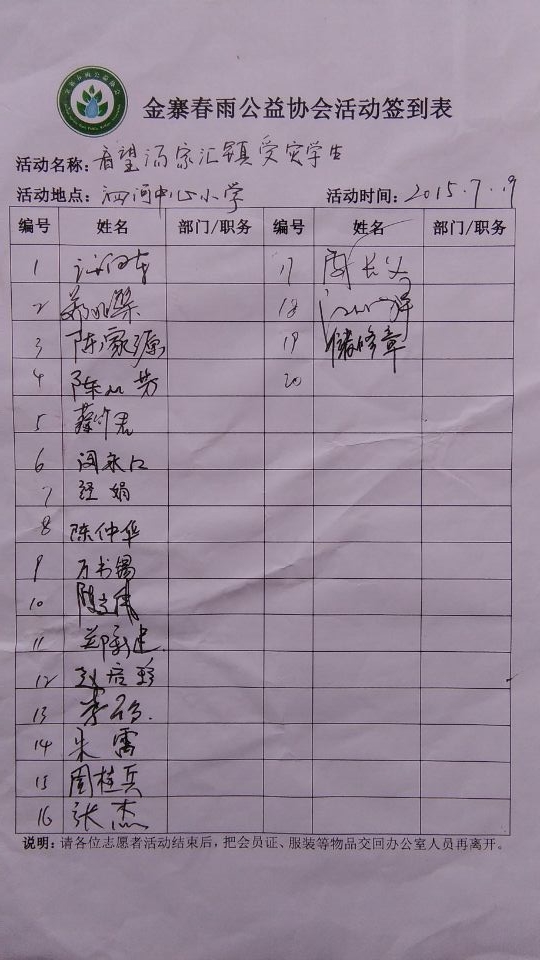 金寨春雨公益协会活动签到表
活动名称：看望汤家汇镇受灾学生
活动地点：泗河中心小学 活动时间：2015.7.19
编号 姓名 部门/职务 编号 姓名 部门/职务
1 17 周长义
2 18
3 陈家源 19 储修章
4 陈从芳 20
5
6 闵永江
7 经娟
8 陈仲华
9 万书锡
10
11 郑承建
12 赵启珍
13 李
14 朱雷
15 周桂兵
16 张杰
说明：请各位志愿者活动结束后，把会员证、服装等物品交回办公室人员再离开。